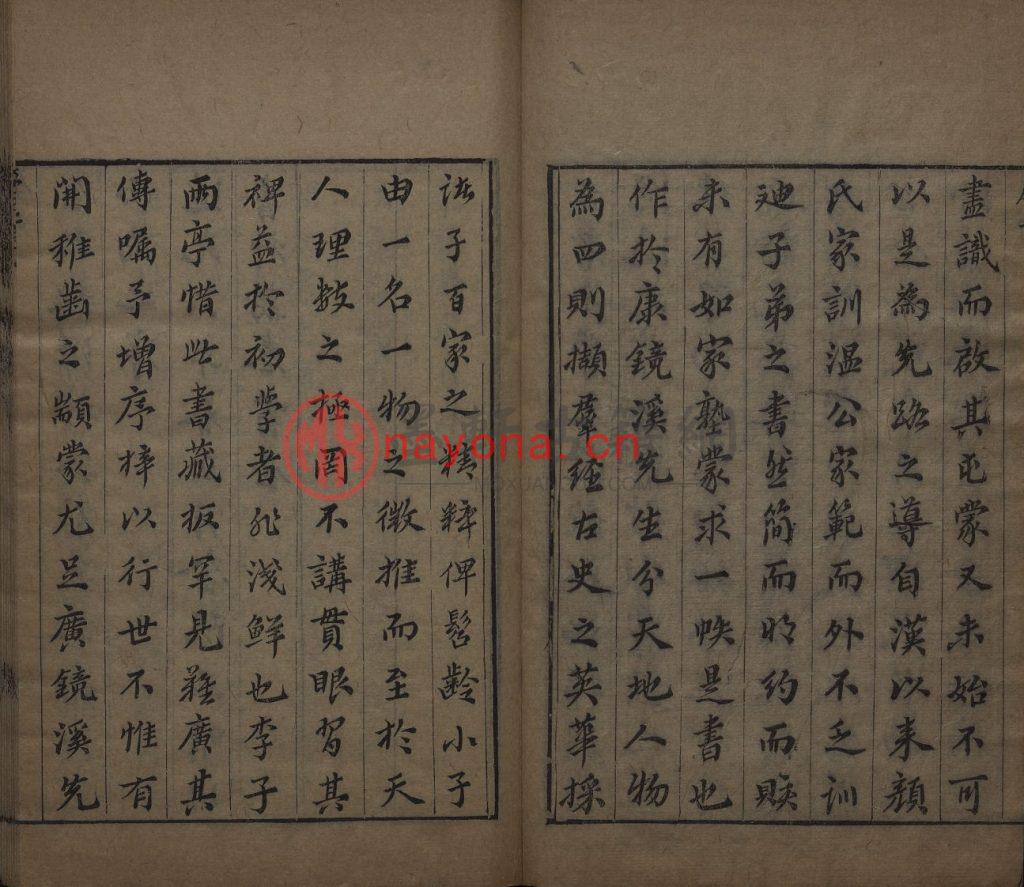 盡識而啟其屯蒙又未始不可
以是為先路之導自漢以来顏
氏家訓温公家範而外不乏訓
廸子弟之書然簡而明約而賅
未有如家塾蒙求一帙是書也
作扵康鏡溪先生分天地人物
為四則擷羣經古史之英華採
諸子百家之精粹俾髫齡小子
由一名一物之微推而至扵天
人理数之極罔不講貫眼習其
裨益扵初學者非淺鮮也李子
兩亭惜此書藏板罕見難廣其
傳囑予增序梓以行世不惟有
開稚齒之顓蒙尤足廣鏡溪先
nayona.cn